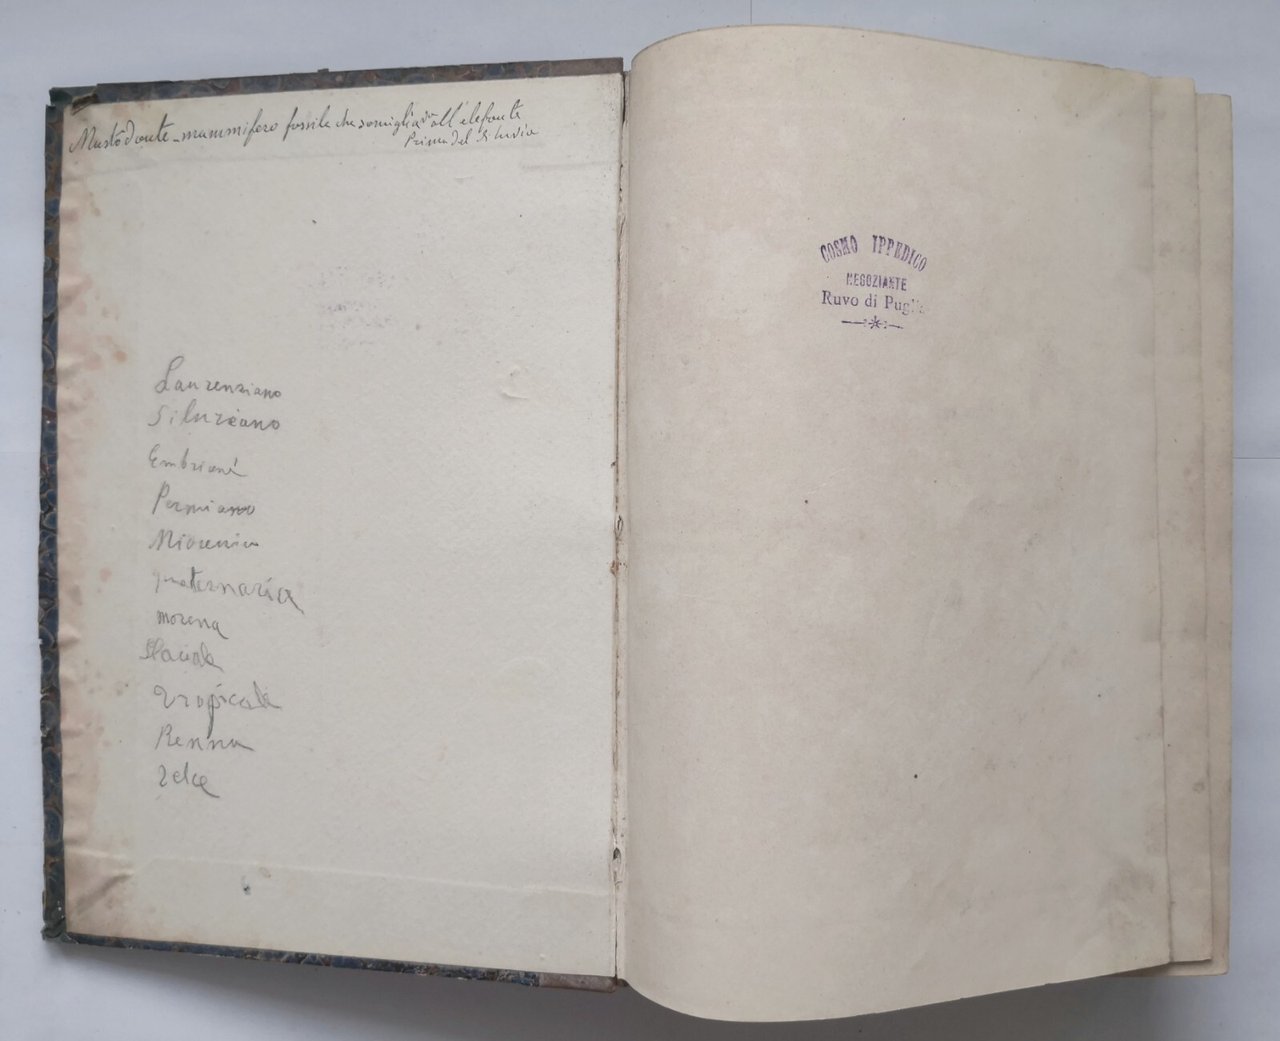 Mastodonte - mammifero fossile che somiglia all'elefante
Prima del diluvio
Laurenziano
Siluriano
Permiano
Miocenico
quaternaria
morena
Glaciale
Tropicale
Renna
COSMO IPPEDICO
NEGOZIANTE
Ruvo di Puglia